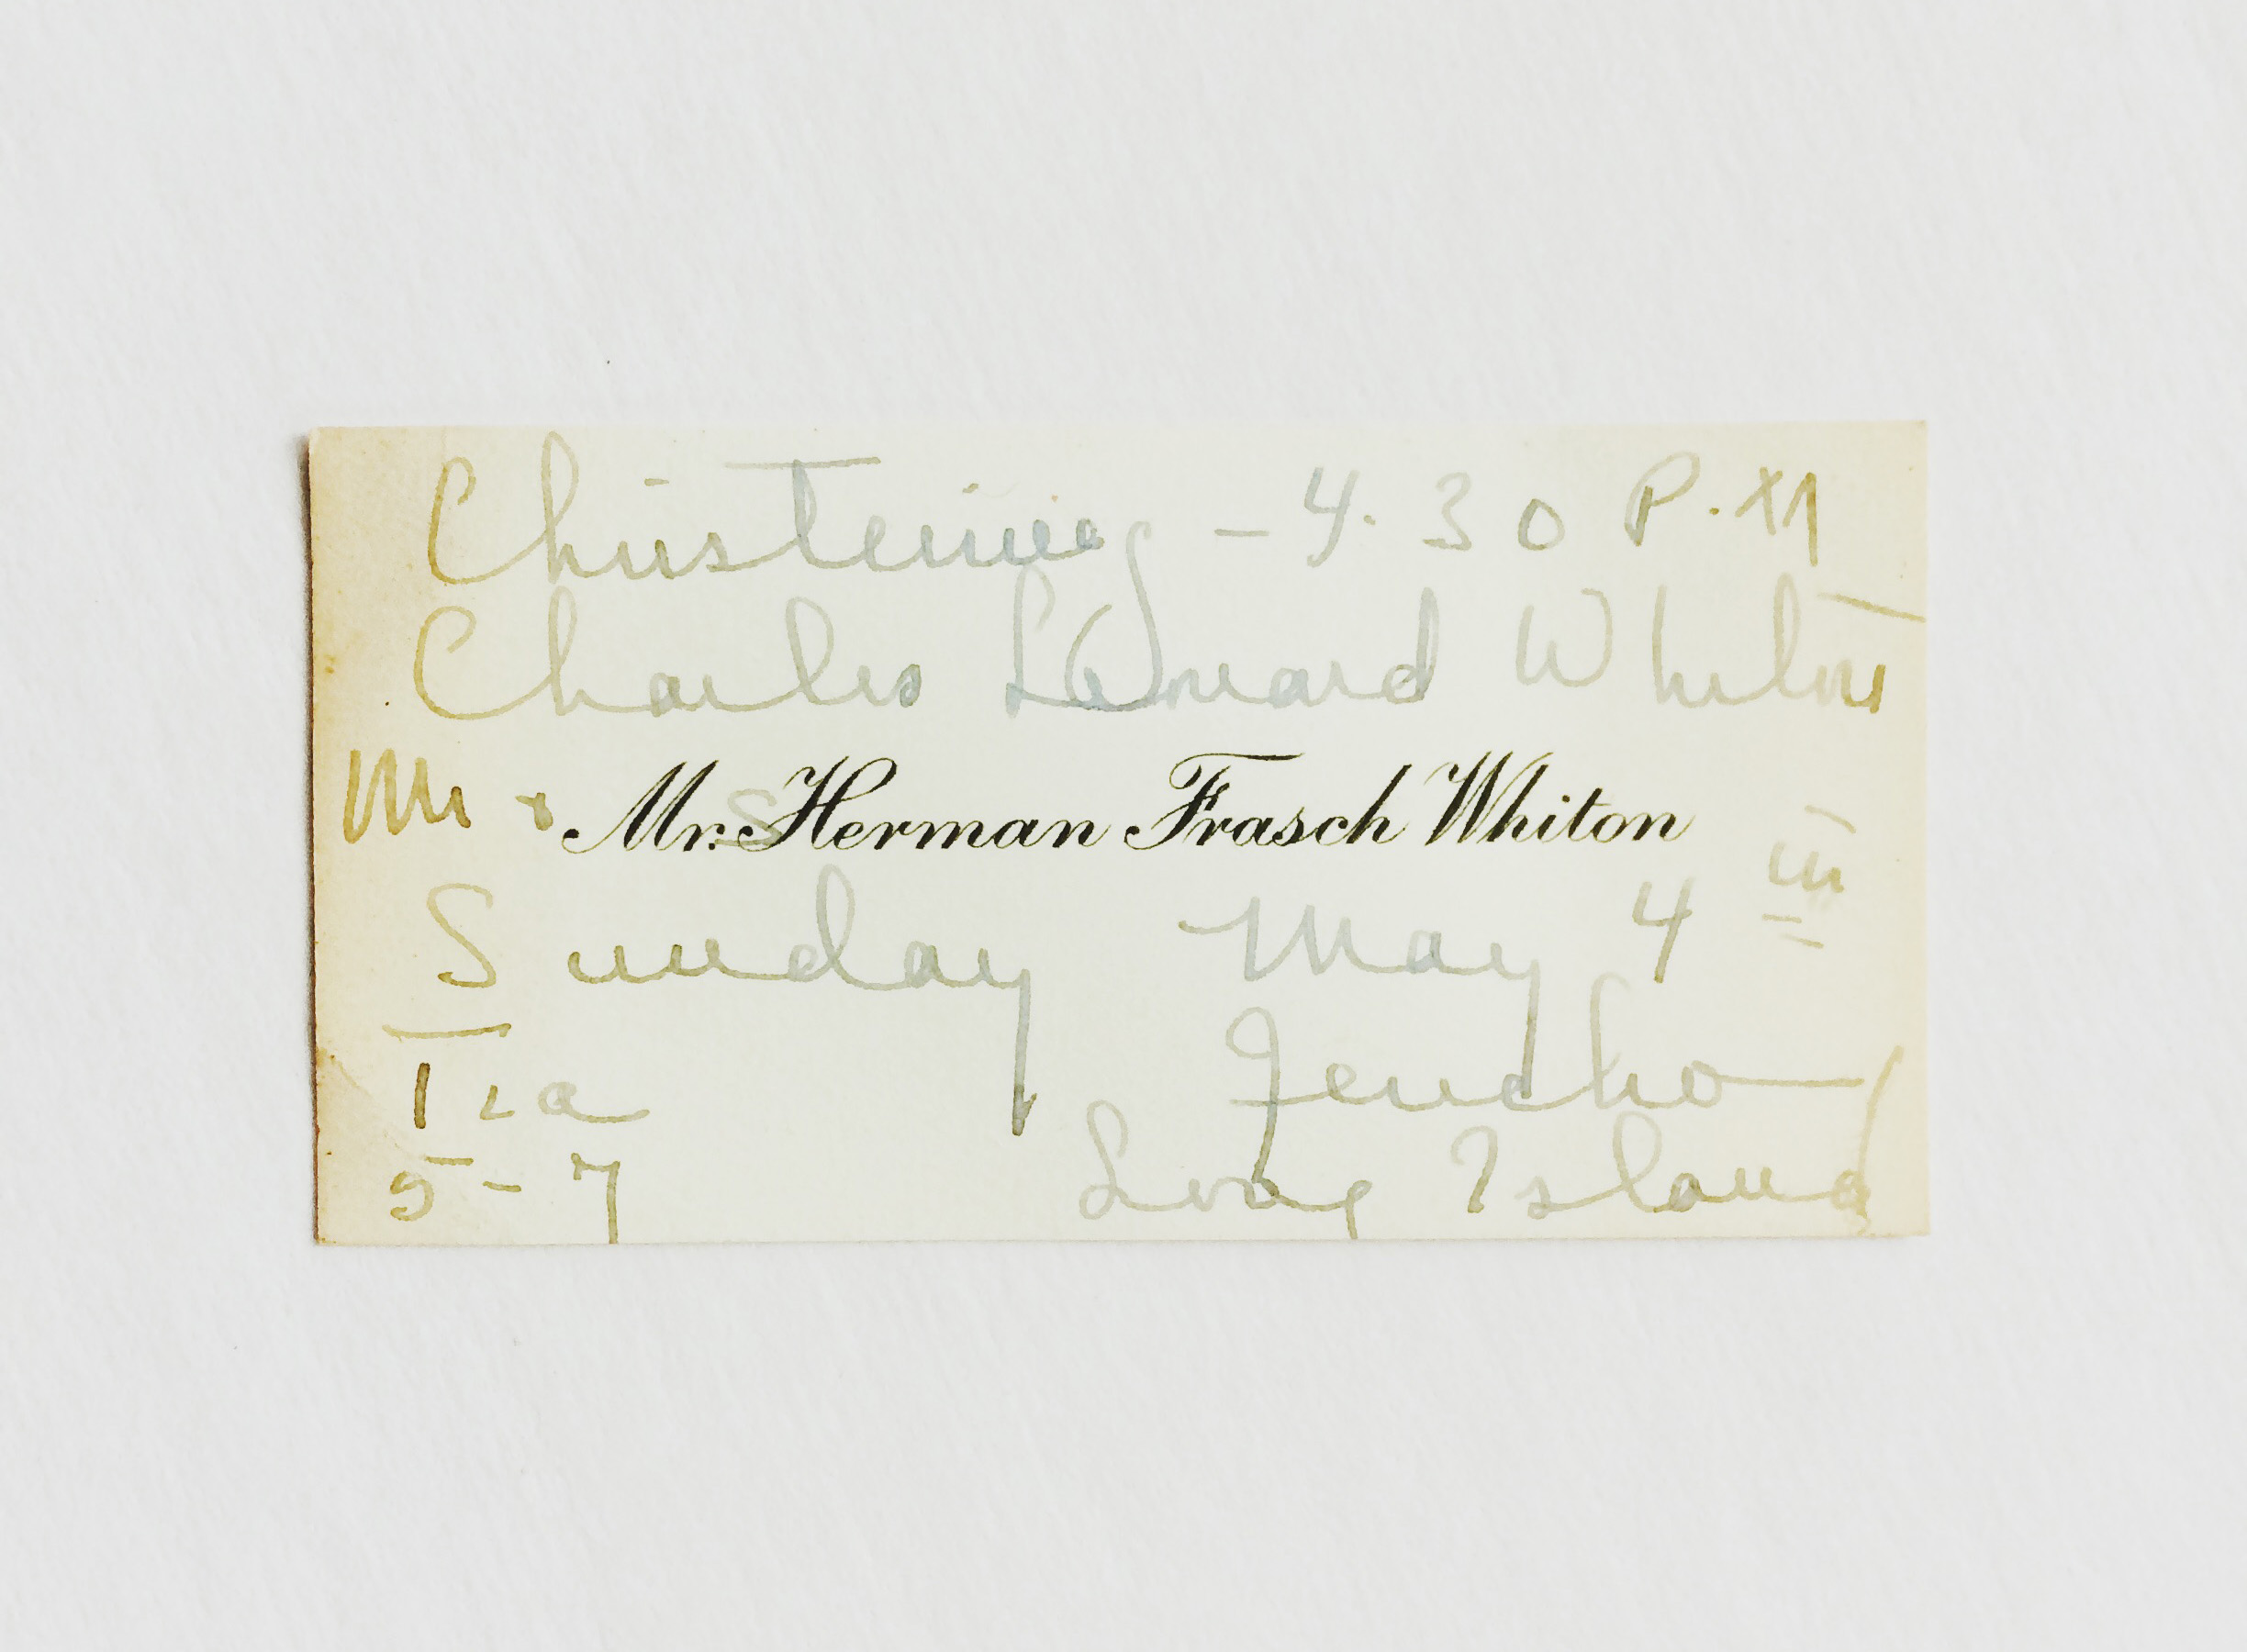 Christening – 4.30 P.M
Charles Leonard Whiton
Mr + Mrs. Herman Frasch Whiton
Sunday May 4th
Tea Jericho
5–7 Long Island